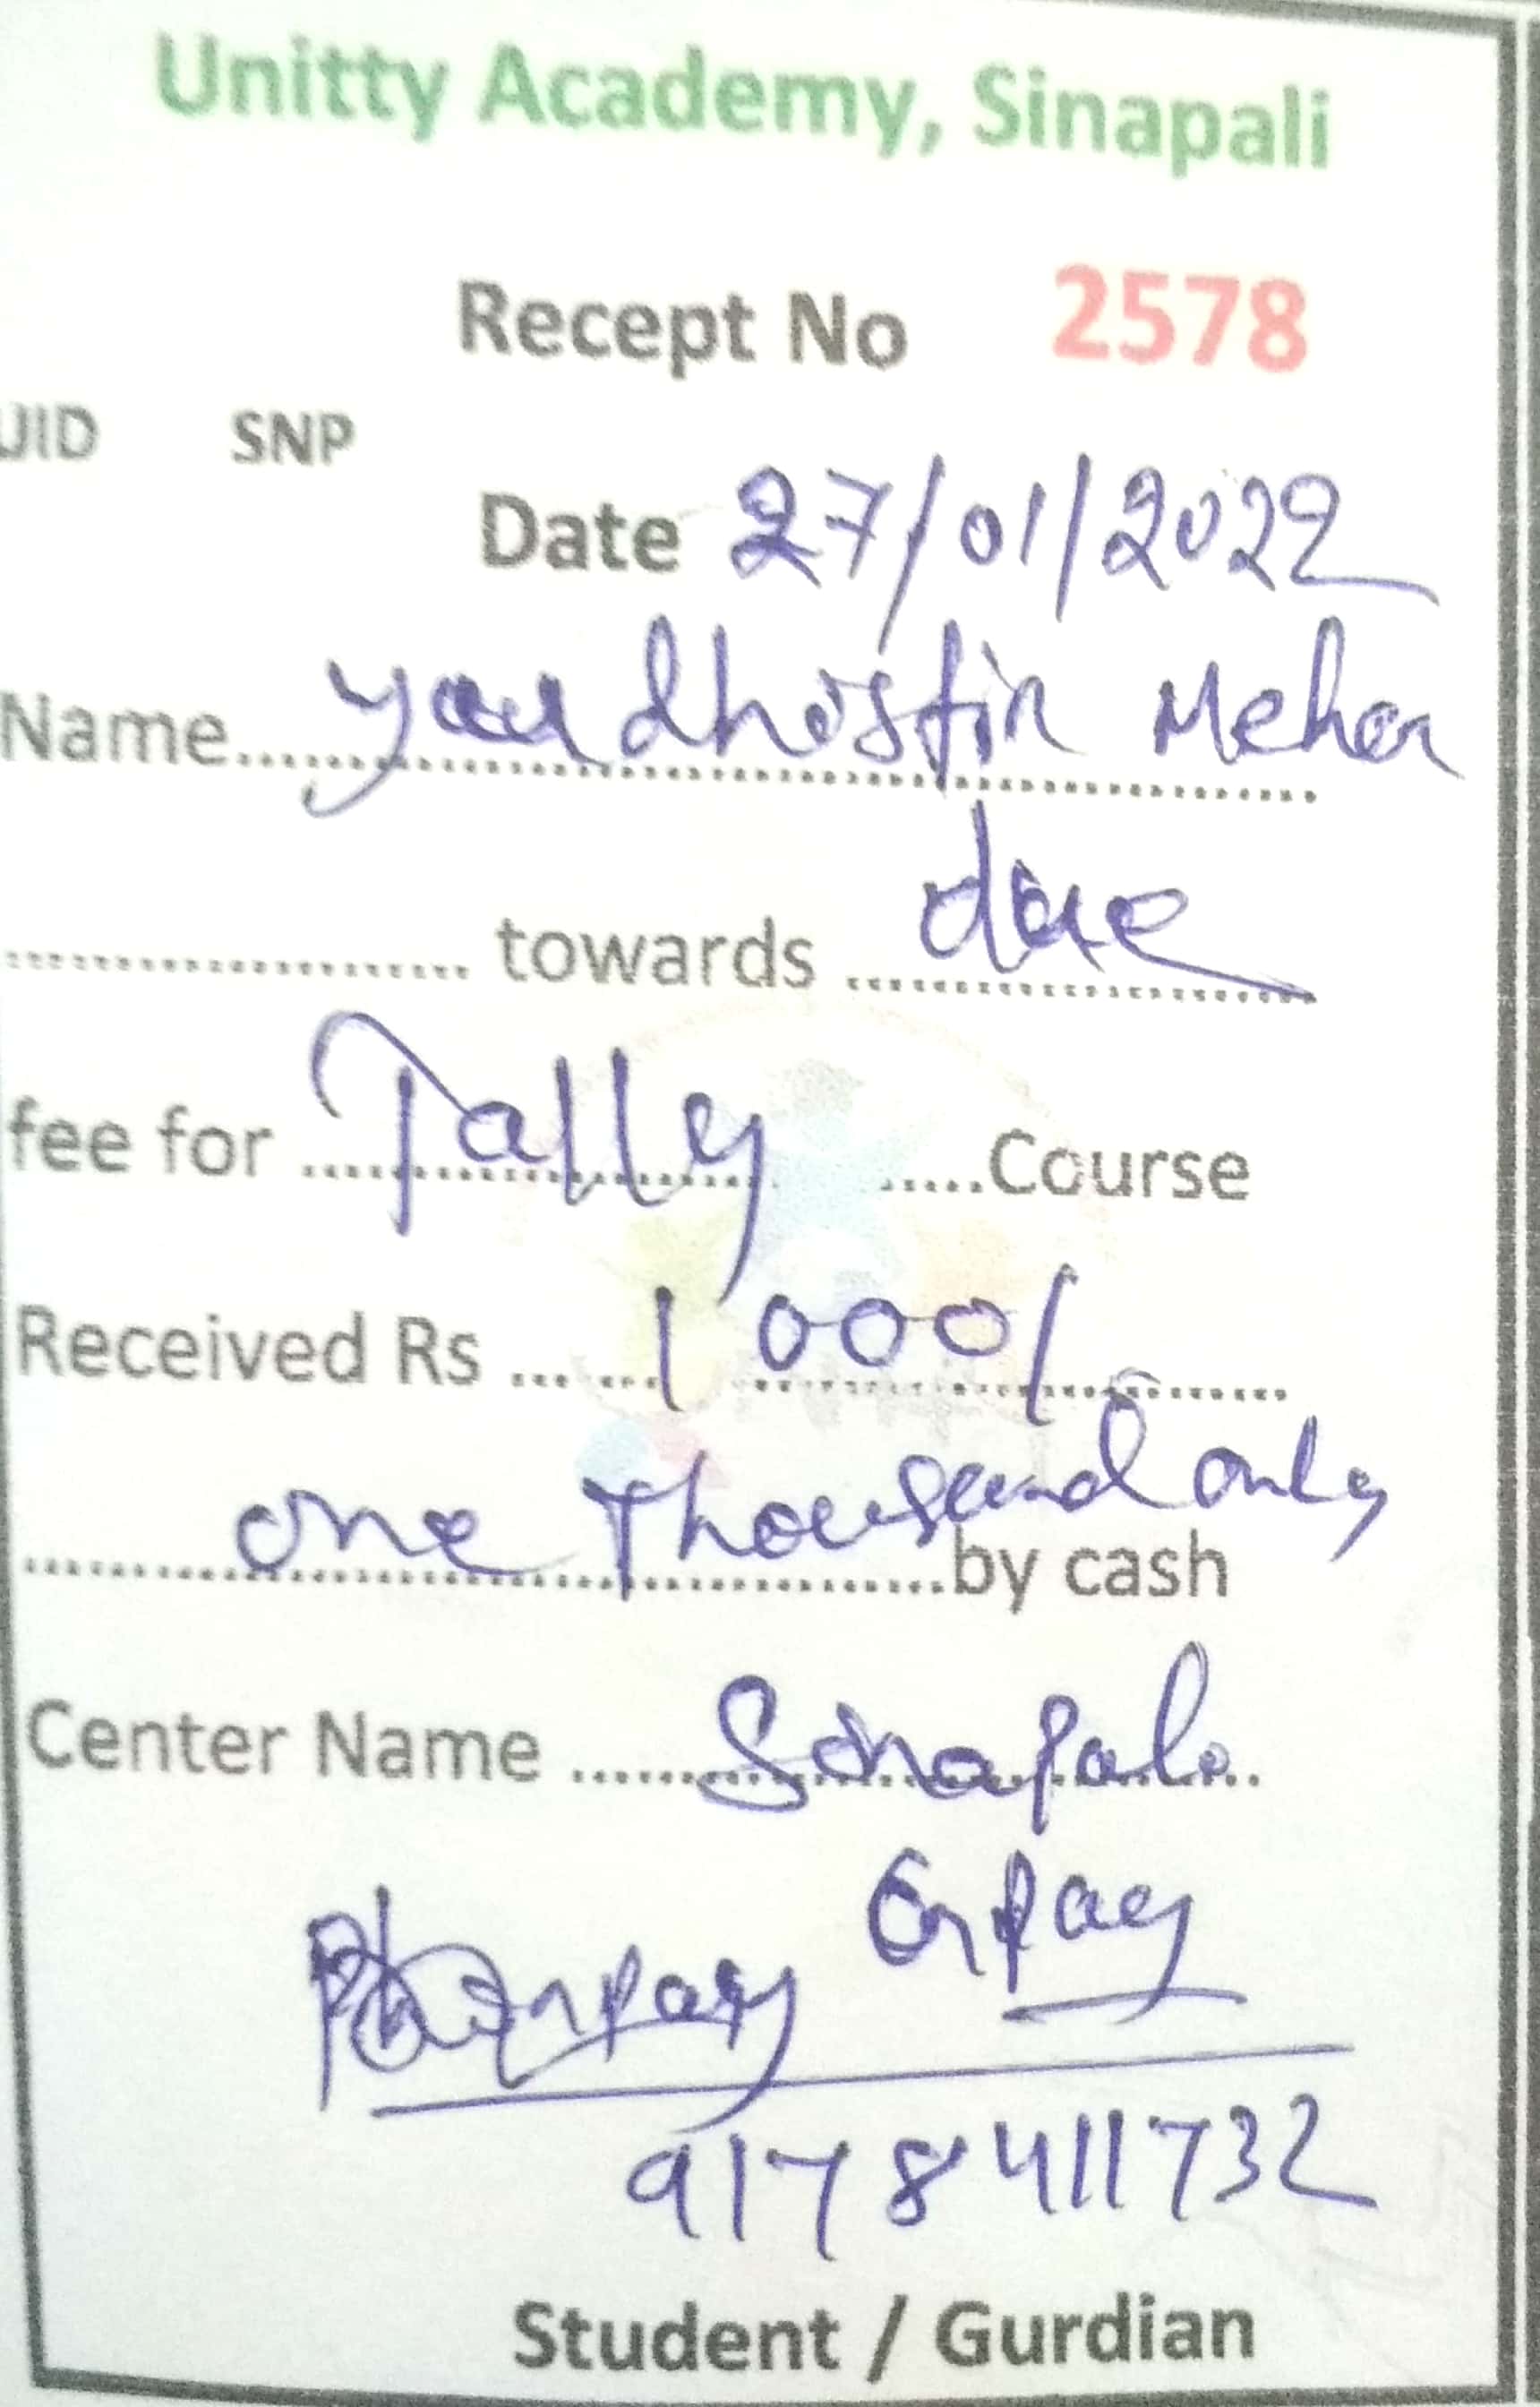 Unitty Academy, Sinapali
Recept No 2578
UID SNP
Date 27/01/2022
Name........ Meher
........ towards due
fee for Tally ......Course
Received Rs ...... 1000/
one Thousand only
........by cash
Center Name ...... Sinapali
Gpay
9178411732
Student / Gurdian